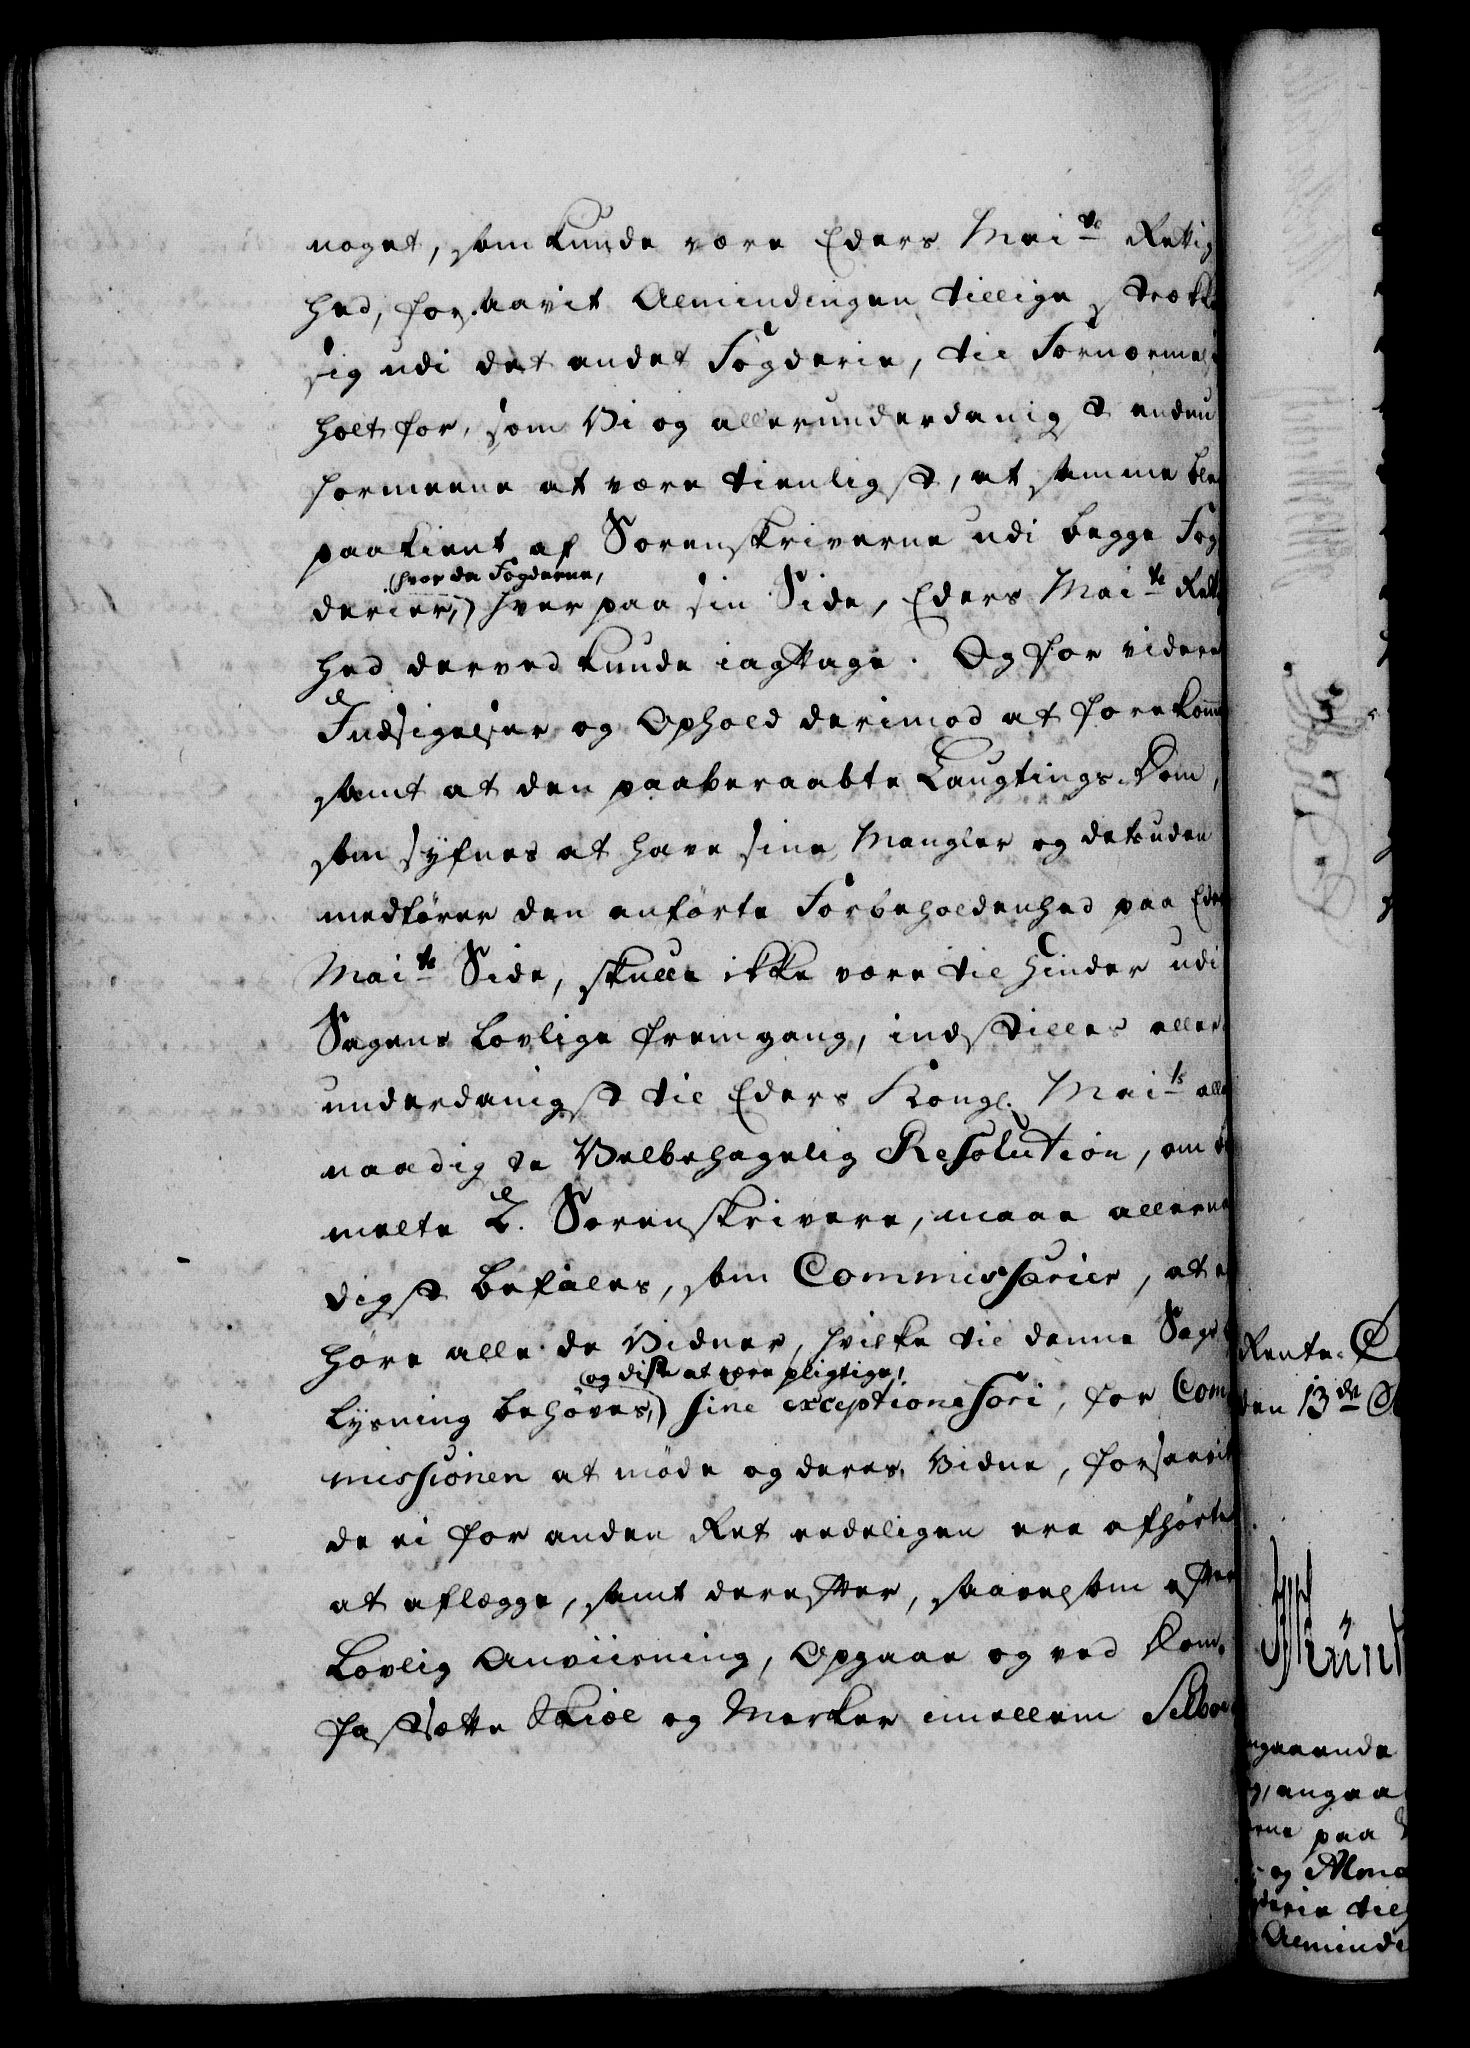 noget, som kunde være Eders Mai.ts Rettig
hed, forsaavit Almindingen tillige strække
sig udi det andet Fogderie, til Fornærmel
holt for, som Vi og allerunderdanigst endnu
formeene at være tienligst, at samme blev
paakient af Sorenskriverne udi begge Fog
(hvor da Fogderne,
derier,) hver paa sin Side, Eders Mai.ts Rett
hed derved kunde iagttage. Og for videre
Indsigelser og Ophold derimod at forekomme
samt at den paaberaabte Laugtings-Dom,
som syfnes at have sine Mangler og desuden
medfører den anførte Forbeholdenhed paa Eders
Mai.ts Side, skulle ikke være til Hinder udi
Sagens lovlige fremgang, indstilles aller-
underdanigst til Eders Kongl. Mai.ts aller
naadigste Velbehagelig Resolution, om be
melte 2. Sorenskrivere, maae allernaa
digst befales, som Commissarier, at
høre alle de Vidner, hvilke til denne Sags
(og diste at være pligtige,
Lysning behøves,) sine exceptione fori, for Com
missionen at møde og deres Vidne, forsaavit
de ei for anden Ret eedeligen ere afhørte
at aflægge, samt derefter, saavelsom efter
Lovlig Anviisning, Opgaae og ved Dom
fastsætte Skiel og Merker imellem Selboe
Rente-C
den 13de
ngaaende
angaa
erne paa
og Alme
derie til
Alminde